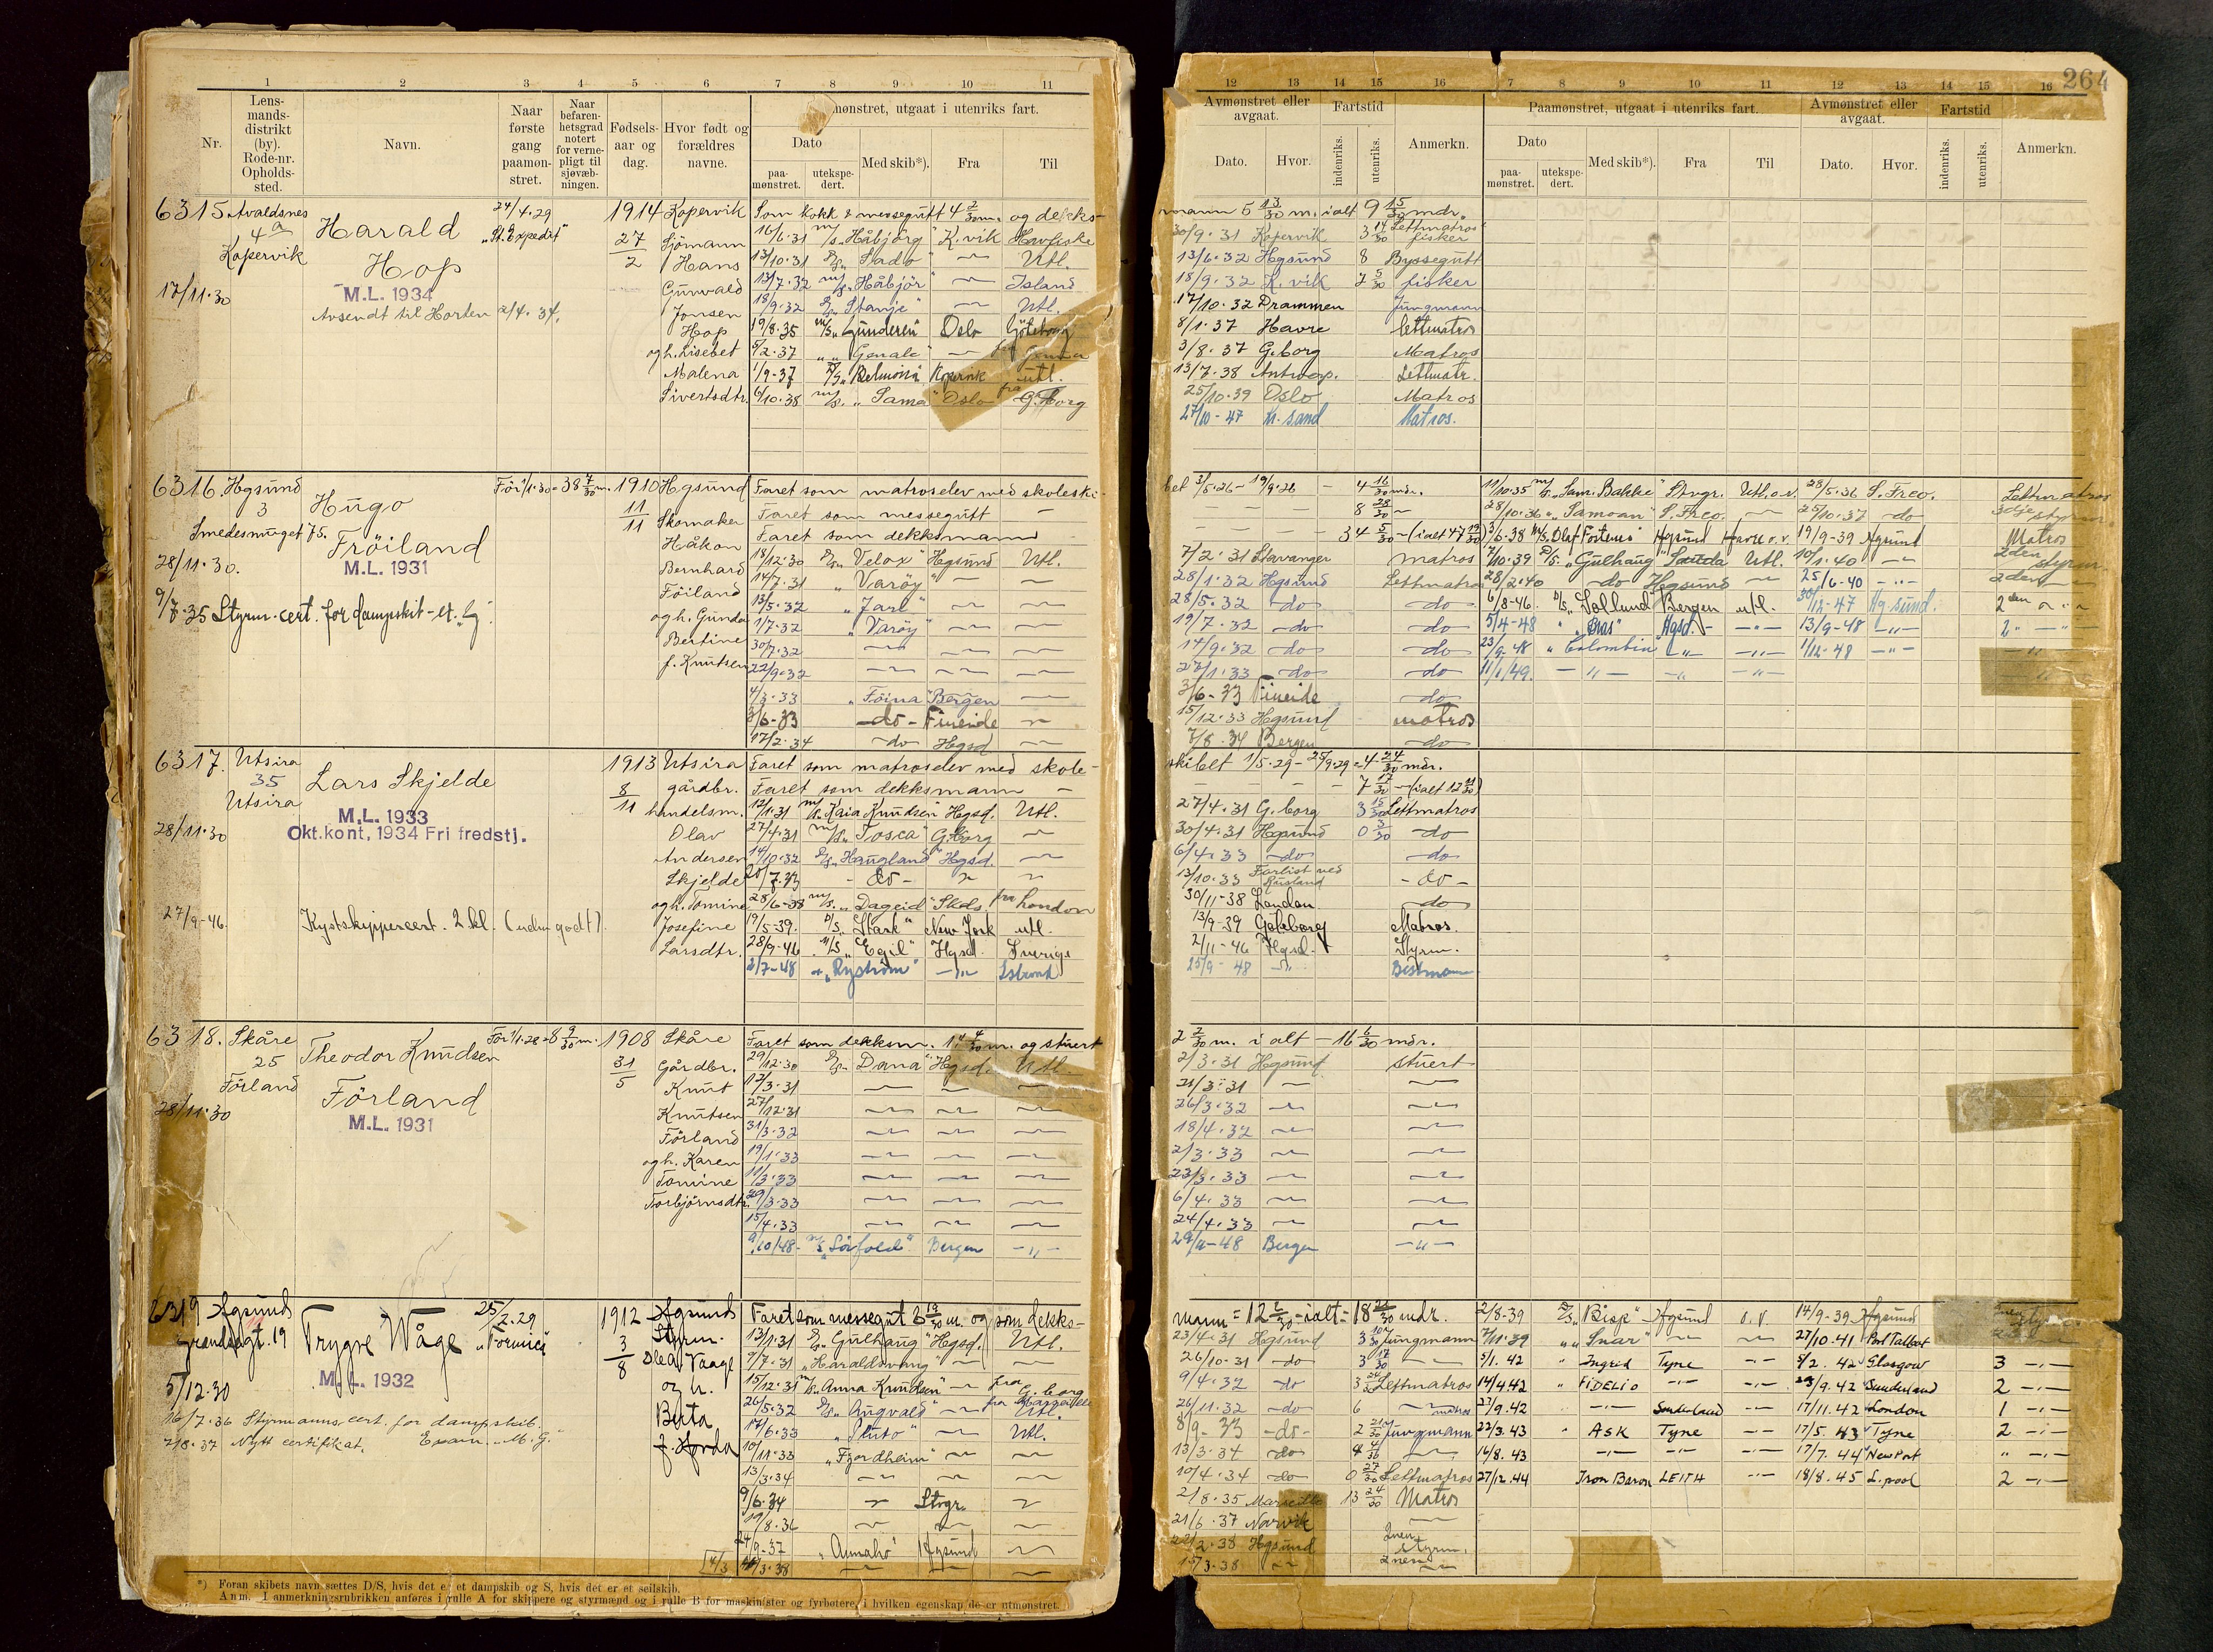 1 2 3 4 5 6 7 8 9 10 11
Nr.
Lens-
mands-
distrikt
(by).
Rode-nr.
Opholds-
sted.
Navn.
Naar
første
gang
paamøn-
stret.
Naar
befaren-
hetsgrad
notert
for verne-
pligt til
sjøvæb-
ningen.
Fødsels-
aar og
dag.
Hvor født og
forældres
navne.
mønstret, utgaat i utenriks fart.
Dato
paa-
mønstret.
utekspe-
dert.
Med skib*).
Fra
Til
6315 Avaldsnes
4a
Kopervik
17/11.30
Harald
Hop
M.L. 1934
Avsendt til Horten 2/4.34.
24/4.29
1914
27/2
Kopervik
Sjömann
Hans
Gunvald
Jonsen
Hop
og h. Lisebet
Malena
Sivertsdtr.
Som kokk & messegutt 4 2/30 m. og dekks-
16/6.31 m/s "Håbjörg" K.vik Havfiske
13/10.31 "Lado" Utl.
13/7.32 m/s "Håbjör" Island
18/9.32 "Stanja" Utl.
19/8.35 m/s "Gunderen" Oslo Göteborg
5/2.37
1/9-37 Kopervik utl.
6/10.38 "Tama" Oslo fra G.borg
6316. Hgsund
3
Smedesmuget 75.
28/11.30.
Hugo
Fröiland
M.L. 1931
9/7.35 Styrm.cert. for dampskib
För 1/1.30 = 38 7/30 m.
1910
11/11
Hgsund
Skomaker
Håkon
Bernhard
Föiland
og h. Gunda
Bertine
f. Knutsen
Faret som matroselev med skoleski-
Faret som messegutt -
Faret som dekksmann -
18/12.30 "Velox" Hgsund Utl.
14/7.31 "Varöy"
13/5.32 "Jarl"
1/7.32 "Varöy"
30/7.32
22/9.32
4/3.33 "Föina" Bergen
3/6-33 -do- Fineide
17/2.34 do Hgsd
6317. Utsira
35
Utsira
28/11.30
Lars Skjelde
M.L. 1933
Okt.kont, 1934 Fri fredstj.
27/9-46. Kystskippercert. 2.kl.
1913
8/11
Utsira
gårdbr.
handelsm.
Olav
Andersen
Skjelde
og h. Tomine
Josefine
Larsdtr.
Faret som matroselev med skole-
Faret som dekksmann -
12/1.31 "Kaia Knudsen" Hgsd. Utl.
27/4.31 m/s "Tosca" G.borg
14/10.32 "Haugland" Hgsd.
20/7.33 - do -
28/6-38 m/s "Dageid" fra London
19/5-39. D/s "Stark" New York utl.
28/9-46 M/s "Egil" Hgsd. Sverige
2/7-48 "Ryström"
6318. Skåre
25
Förland
28/11.30
Theodor Knudsen
Förland
M.L. 1931
För 1/1.28 = 8 9/30 m.
1908
31/5
Skåre
Gårdbr.
Knut
Knutsen
Förland
og h. Karen
Tomine
Torbjörnsdtr.
Faret som dekksm. 14 4/30 m. og stuert
29/12.30 "Dana" Hgsd. Utl.
12/3.31
27/12.31
31/3.32
19/1.33
10/3.33
29/3.33
15/4.33
9/10/48- "Sörfold" Bergen - " -
6319 Hgsund
Strandagt. 19
5/12.30
Trygve Wåge
M.L. 1932
16/7.36 Styrmanns.cert. for dampskib.
7/8.37 Nytt certifikat. Exam. "M.G."
25/2.29
1912
3/8
Hgsund
Styrm.
Olea Vaage
og h.
Berta
f. Horda
Faret som messegut 6 19/30 m. og som dekks-
13/1.31 "Gulhaug" Hgsd. Utl.
9/7.31 "Haraldsvang"
15/12.31 m/s "Anna Knudsen" fra G.borg
26/5.32 "Augvald" fra Marseille
14/6.33 "Pluto" Utl.
10/11.33 "Fjordheim"
13/3.34
9/6.34 Stvgr.
19/8.36
24/9-37 "Annahö" Hgsund
14/3.38
*) Foran skibets navn sættes D/S, hvis det er et dampskib og S, hvis det er et seilskib.
Anm. I anmerkningsrubrikken anføres i rulle A for skippere og styrmænd og i rulle B for maskinister og fyrbøtere, i hvilken egenskap de er utmønstret.
264
12 13 14 15 16 7 8 9 10 11 12 13 14 15 16
Avmønstret eller
avgaat.
Dato.
Hvor.
Fartstid
indenriks.
utenriks.
Anmerkn.
Paamønstret, utgaat i utenriks fart.
Dato
paa-
mønstret.
utekspe-
dert.
Med skib*).
Fra
Til
Avmønstret eller
avgaat.
Dato.
Hvor.
Fartstid
indenriks.
utenriks.
Anmerkn.
mann 5 13/30 m. ialt 9 15/30 mdr.
30/9.31 Kopervik 3 14/30 Lettmatros fisker
13/6.32 Hgsund 8 Byssegutt
18/9.32 K.vik 2 5/30 fisker
17/10.32 Drammen Jungmann
8/1.37 Havre lettmatros
3/8.37 G.borg Matros
13/7.38 Antwerp. Lettmatr.
25/10.39 Oslo Matros
27/10-47 Kr.sand Matros.
bet 3/5.26 - 19/9.26 - 4 16/30 mdr.
8 28/30
34 5/30 - (ialt 47 19/30)
7/2.31 Stavanger matros
28/1.32 Hgsund Lettmatros
28/5.32 -do- -do-
19/7.32 -do- -do-
14/9.32 -do- -do-
27/1.33 -do- -do-
3/6-33 Fineide -do-
15/12.33 Hgsund matros
7/8.34 Bergen -do-
11/10.35 m/s "Sam. Bakke" Stvgr. Utl.o.v. 28/5.36 S. Frco. Lettmatros
28/10.36 "Samoan" S. Frco. 25/10.37 -do- 3dje styrm.
3/6.38 M/s. Olaf Fostenes Hgsund Havre o.v. 19/9-39 Hgsund Matros
7/10.39 "Gulhaug" Sauda Utl. 10/1.40 2den styrm.
28/2.40 -do- Hgsund 25/6-40 - " - 2den
6/8-46. D/s "Sollund" Bergen utl. 30/12-47 Hg.sund. 2den
5/4-48 " "Bras" Hgsd. - " - 13/9-48 - " - 2
23/9.48 " "Colombia" - " - 1/12-48 - " -
11/1/49. - " - - " - - " -
skibet 1/5.29 - 25/9.29 = 4 24/30 mdr.
7 17/30 - (ialt 12 11/30)
27/4.31 G.borg 3 15/30 Lettmatros
30/4.31 Hgsund 0 3/30 -do-
6/4.33 -do- -do-
13/10.33 Forlist ved Rusland - do -
30/11-38 London -do-
13/9-39 Göteborg Matros.
2/11-46 Hgsd. Styrm.
25/9-48 - " - Bestmann
2 2/30 m. i alt - 16 6/30 mdr.
2/3.31 Hgsund stuert
21/3.31
26/3.32
18/4.32
2/3.33
23/3.33
6/4.33
24/4.33
29/11-48 Bergen - " -
mann = 12 2/30 - ialt - 18 21/30 mdr.
23/4.31 Hgsund 3 10/30 Jungmann
26/10.31 -do- 3 17/30
9/4.32 -do- 3 24/30 Lettmatros
26/11.32 -do- 6 matros
8/9-33 -do- 2 21/30 Jungmann
13/3.34 -do- 4 4/30
10/4.34 -do- 0 27/30 Lettmatros
2/8.35 Marseille 13 24/30 Matros
21/6.37 Narvik
22/2.38 Hgsund 2nen styrm.
15/3.38 2nen
2/8-39 "Bisp" Hgsund o.v. 14/9-39 Hgsund
7/11.39 "Snar" 27/10-41 Port Talbot
5/1.42 " Ingrid Tyne - " - 8/2.42 Glasgow 3 - " -
14/4.42 " FIDELIO - " - - " - 23/9.42 Sunderland 2 - " -
27/9.42 " - " - Sunderland - " - 17/11.42 London 1 - " -
22/3.43 " ASK Tyne - " - 17/5.43 Tyne 2 - " -
16/8.43 - " - - " - - " - 17/7.44 NewPort " - " -
27/12.44 Iron Baron LEITH - " - 18/8.45 L.pool 2 - " -